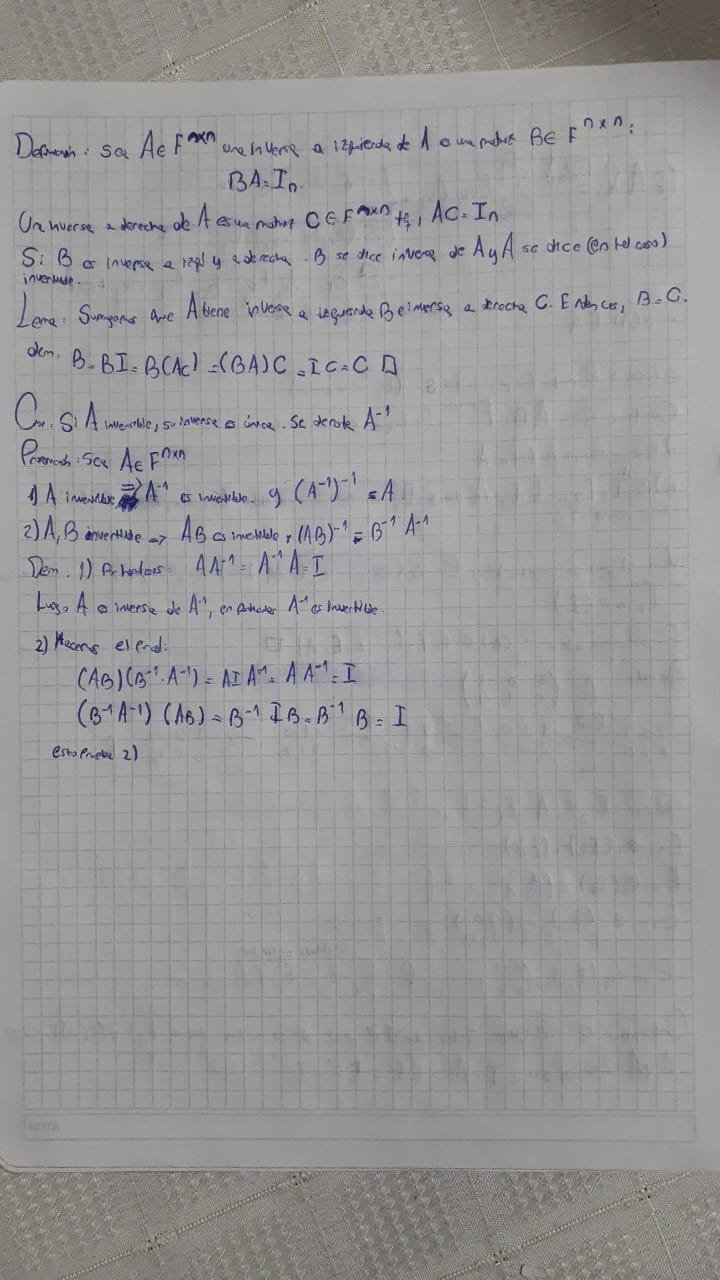 Definición: sea A∈F^nxn una inversa a izquierda de A es una matriz B∈F^nxn:
BA=In
Una inversa a derecha de A es una matriz C∈F^nxn tq, AC=In
Si B es inversa a izq y a derecha. B se dice inversa de A y A se dice (en tal caso)
invertible.
Lema: Supongamos que A tiene inversa a izquierda B e inversa a derecha C. Entonces, B=C.
dem. B=BI=B(AC)=(BA)C=IC=C □
Cor. Si A invertible, su inversa es única. Se denota A^-1
Proposición: Sea A∈F^nxn
1) A invertible => A^-1 es invertible. y (A^-1)^-1 = A
2) A, B invertible => AB es invertible y (AB)^-1 = B^-1 A^-1
Dem. 1) Por AA^-1 = A^-1 A = I
Luego A es inversa de A^-1, en A^-1 es invertible.
2) Hacemos el prod:
(AB)(B^-1.A^-1) = AIA^-1 = AA^-1 = I
(B^-1A^-1)(AB) = B^-1 IB = B^-1 B = I
esto prueba 2)
NOTA